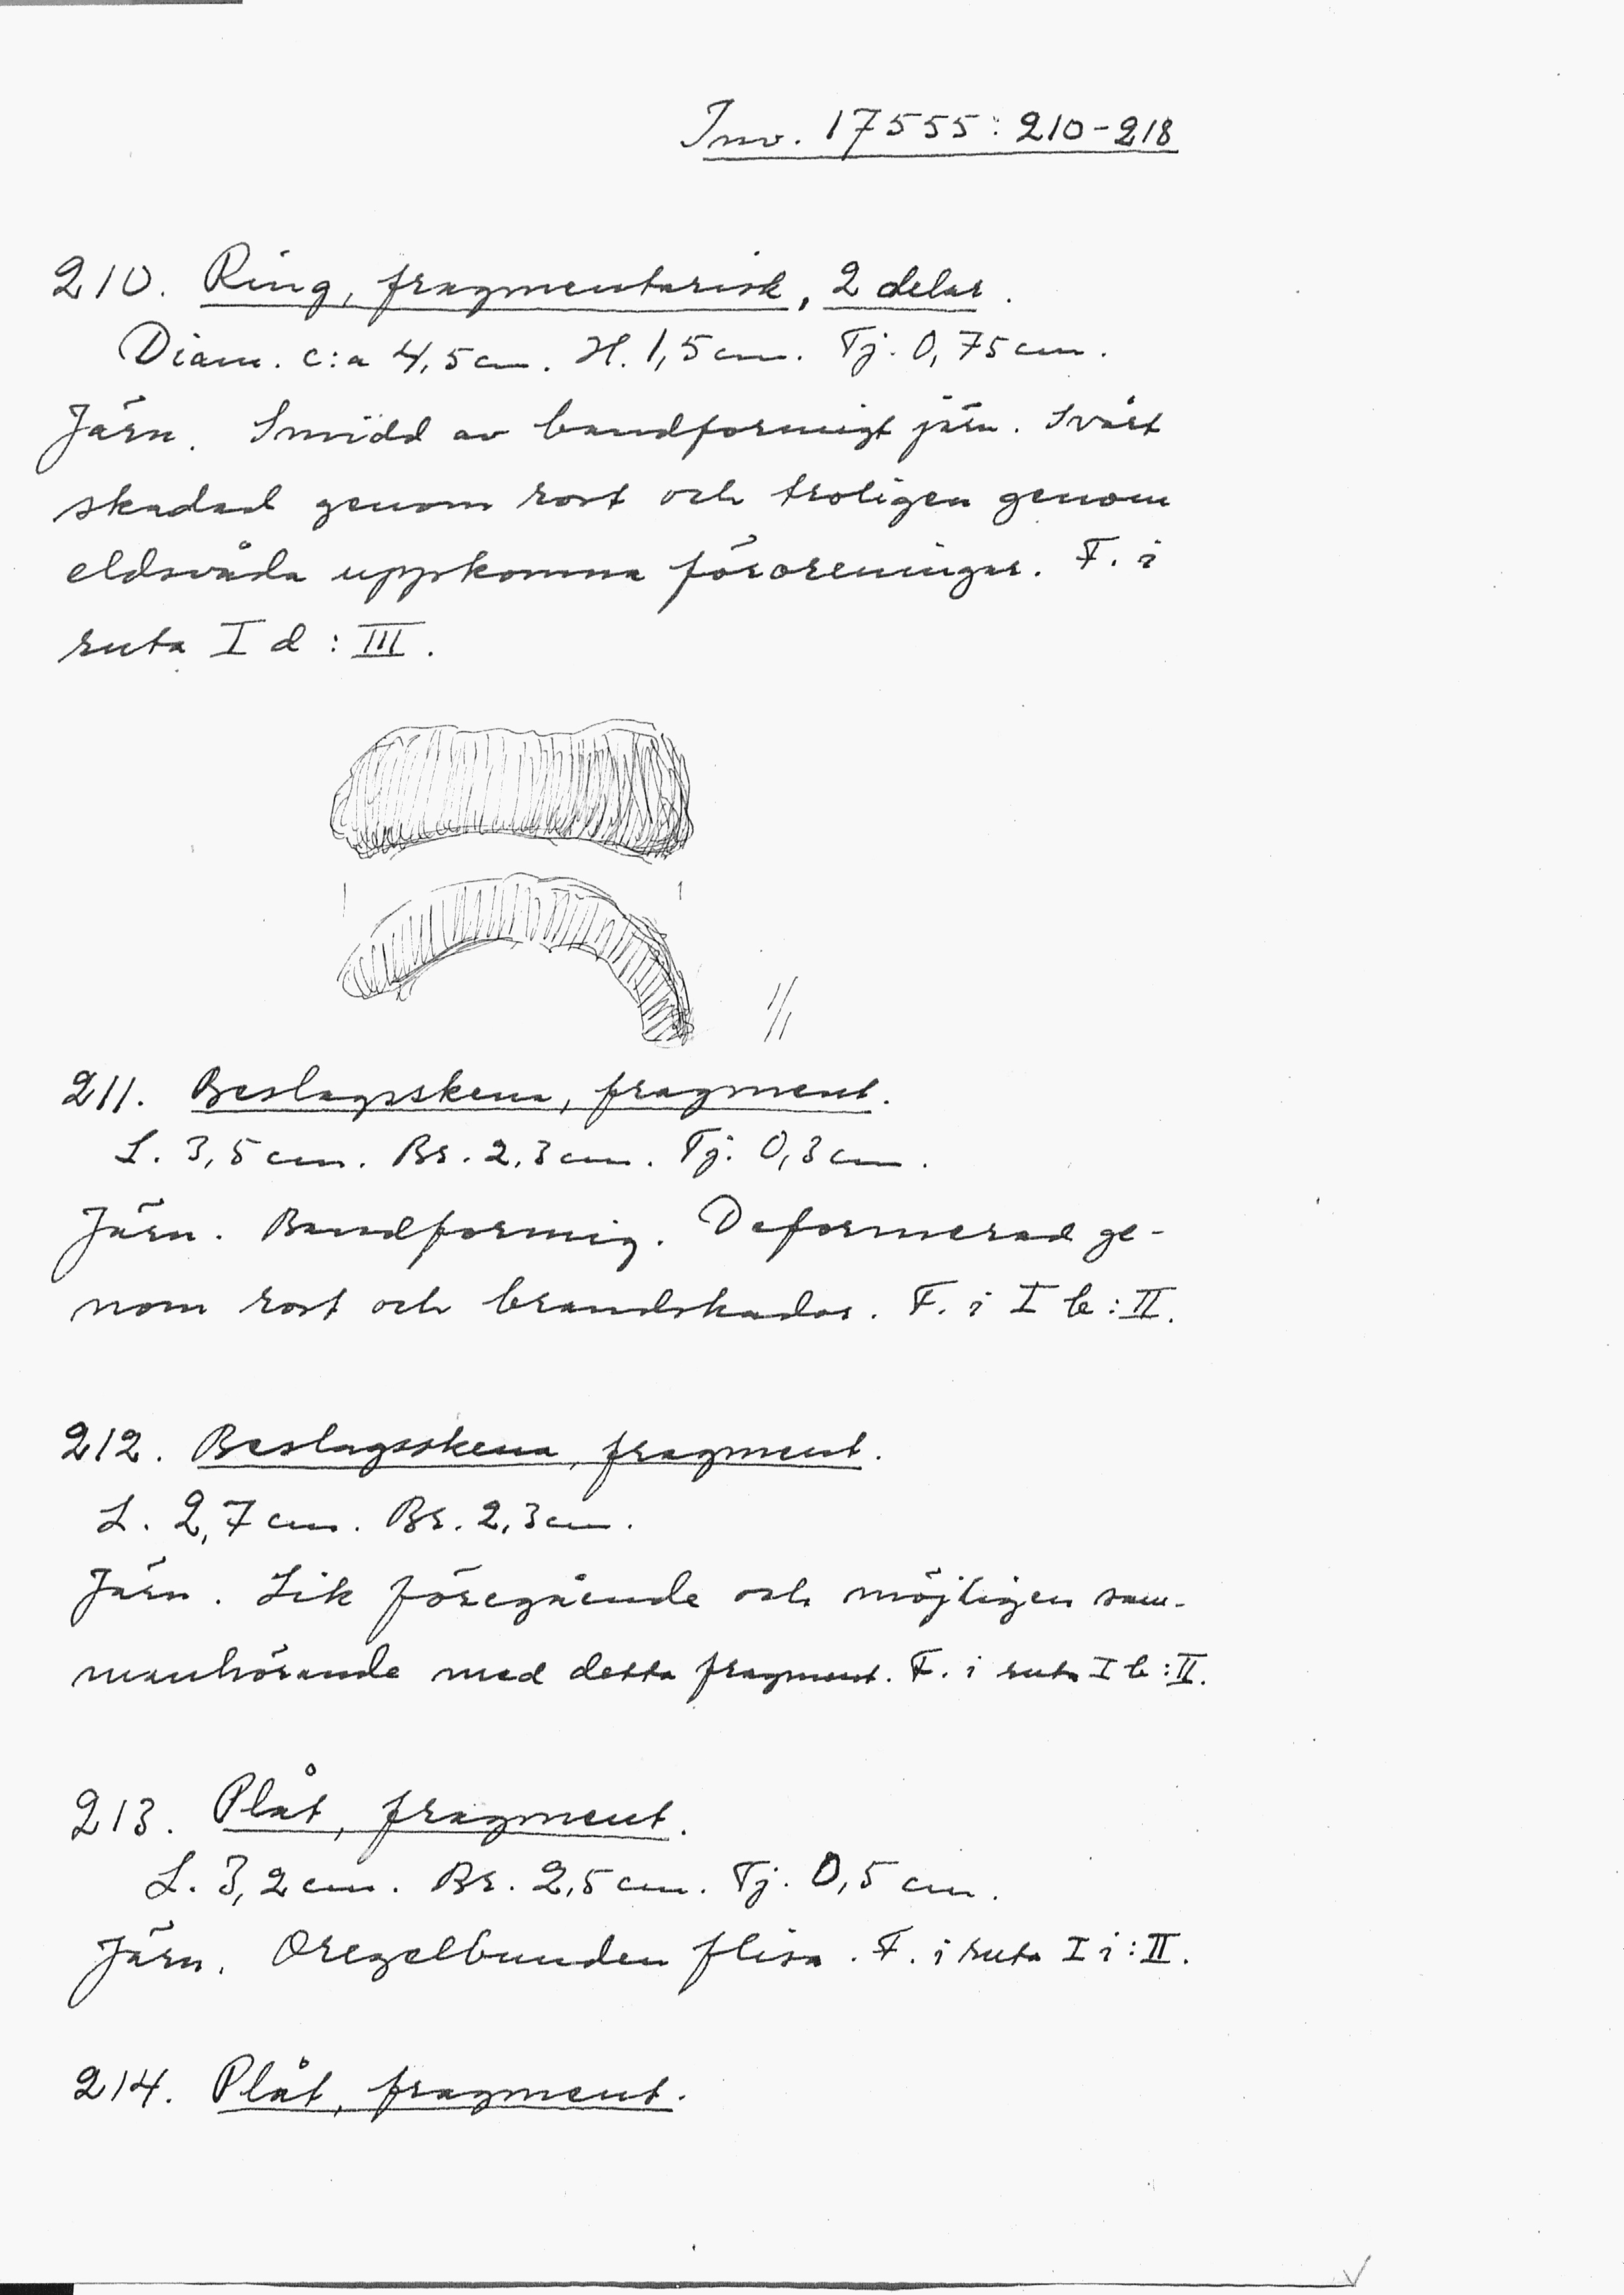 Inv. 17555:210-218
210. Ring, fragmentarisk, 2 delar.
Diam. c:a 4,5cm. H. 1,5cm. Tj. 0,75cm.
Järn. Smidd av bandformigt järn. Svårt
skadad genom rost och troligen genom
eldsvåda uppkomna föroreningar. F. i
ruta I d : III.
1/1
211. Beslagsskena, fragment.
L. 3,5cm. Br. 2,3cm. Tj. 0,3cm.
Järn. Bandformig. Deformerad ge-
nom rost och brandskador. F. i I b : II.
212. Beslagsskena, fragment.
L. 2,7cm. Br. 2,3cm.
Järn. Lik föregående och möjligen sam-
manhörande med detta fragment. F. i ruta I b : II.
213. Plåt, fragment.
L. 3,2cm. Br. 2,5cm. Tj. 0,5cm.
Järn. Oregelbunden flisa. F. i ruta I i : II.
214. Plåt, fragment.